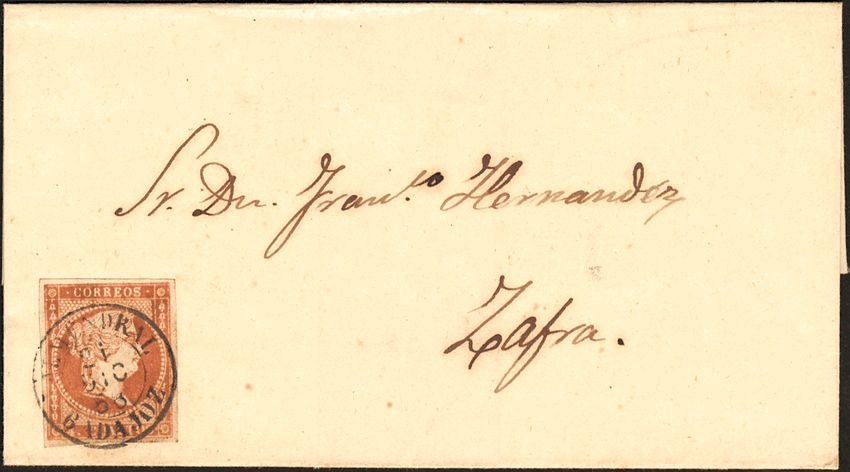 Sr. Dn. Franco. Hernandez
Zafra.
CORREOS
ALMENDRAL
DIC
BADAJOZ